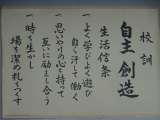 校訓
自主創造
生活信条
一 よく学びよく遊び
自ら汗して働く
一 思いやりの心を持って
互いに励まし合う
一 時を生かし
場を潔め礼をつくす